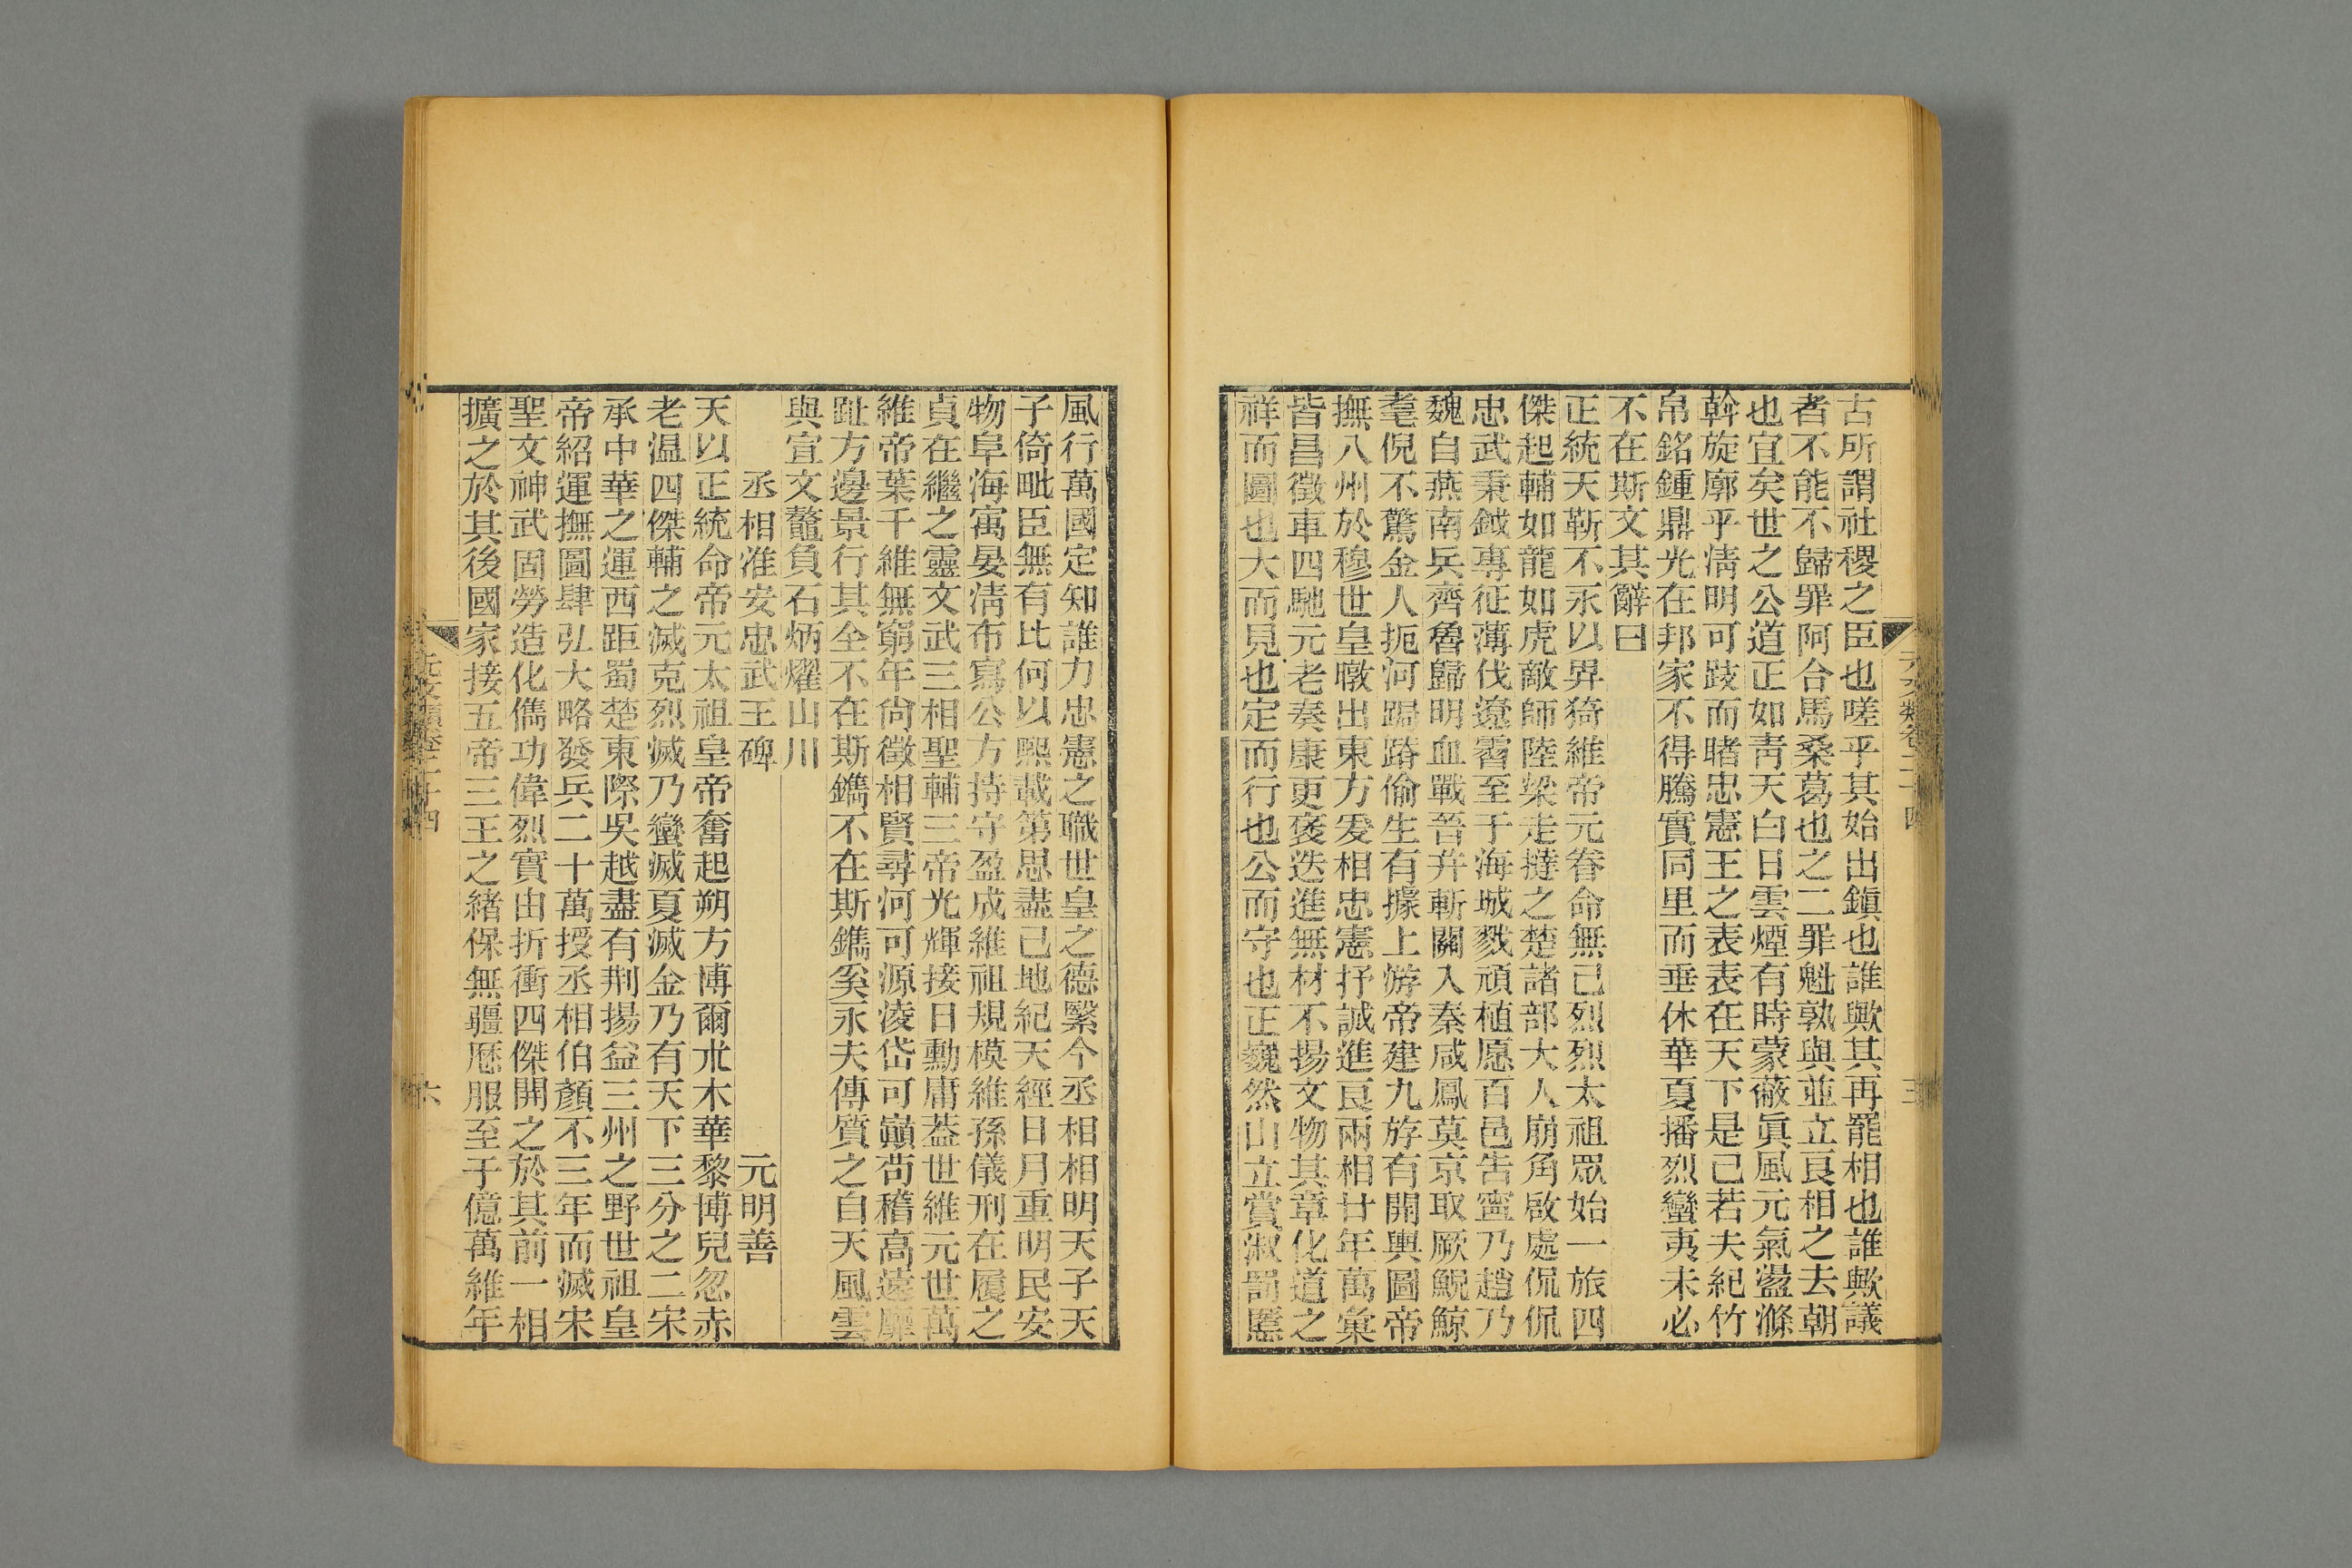 古所謂社稷之臣也嗟乎其始出鎭也誰歟其再罷相也誰歟議
者不能不歸罪阿合馬桑葛也之二罪魁孰與並立良相之去朝
也宜矣世之公道正如靑天白日雲煙有時蒙蔽眞風元氣盪滌
斡旋廓乎淸明可跂而睹忠憲王之表表在天下是已若夫紀竹
帛銘鍾鼎光在邦家不得騰實同里而垂休華夏播烈蠻夷未必
不在斯文其辭曰
正統天靳不永以畀猗維帝元眷命無已烈烈太祖眾始一旅四
傑起輔如龍如虎敵師陸梁走撻之楚諸部大人崩角啟處侃侃
忠武秉鉞專征薄伐遼霫至于海城戮頑植愿百邑告寧乃趙乃
魏自燕南兵齊魯歸明血戰晉幷斬關入秦咸鳳莫京取厥鯢鯨
耄倪不驚金人扼河跼蹐偷生有據上游帝建九斿有開輿圖帝
撫八州於穆世皇暾出東方爰相忠憲抒誠進良兩相廿年萬彙
皆昌徵車四馳元老奏康更褎迭進無材不揚文物其章化道之
祥而圖也大而見也定而行也公而守也正巍然山立賞淑罰慝
風行萬國定知誰力忠憲之職世皇之德繄今丞相相明天子天
子倚毗臣無有比何以熙載第思盡己地紀天經日月重明民安
物阜海寓晏淸布寫公方持守盈成維祖規模維孫儀刑在履之
貞在繼之靈文武三相聖輔三帝光輝接日勳庸蓋世維元世萬
維帝葉千維無窮年尙徵相賢尋河可源淩岱可巓苟稽高遠靡
趾方邊景行其全不在斯鐫不在斯鐫奚永夫傳質之自天風雲
與宜文鼇負石炳燿山川
丞相淮安忠武王碑　元明善
天以正統命帝元太祖皇帝奮起朔方博爾朮木華黎博兒忽赤
老温四傑輔之滅克烈滅乃蠻滅夏滅金乃有天下三分之二宋
承中華之運西距蜀楚東際吳越盡有荆揚益三州之野世祖皇
帝紹運撫圖肆弘大略發兵二十萬授丞相伯顏不三年而滅宋
聖文神武固勞造化儁功偉烈實由折衝四傑開之於其前一相
擴之於其後國家接五帝三王之緖保無疆厯服至于億萬維年
元文類卷二十四
六